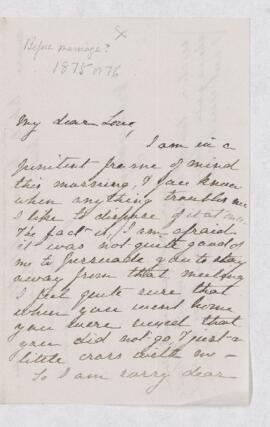 Before marriage?
1875 or 76
My dear Love,
I am in a
penitent frame of mind
this morning, & you know
when anything troubles me
I like to dispose of it at once.
The fact is, I am afraid
it was not quite good of
me to persuade you to stay
away from that meeting
I feel quite sure that
when you went home
you were vexed that
you did not go, & just a
little cross with me —
So I am sorry dear